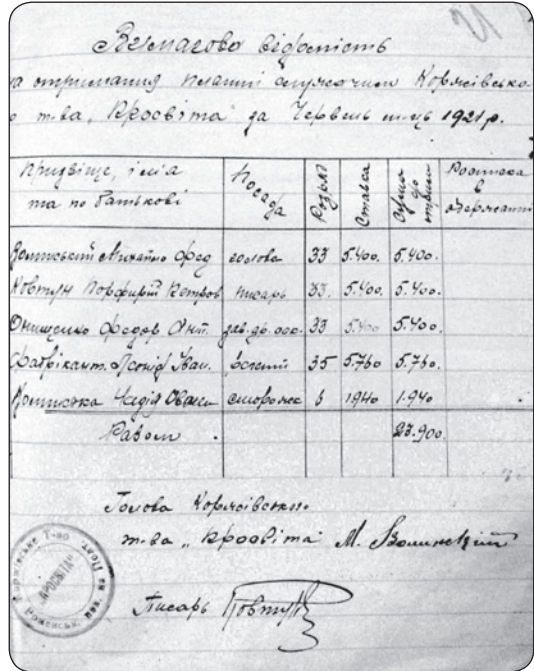 Вимагова відомість
на отримания платні служачими Коржівсько-
о т-ва „Просвіта" за Червень м-ць 1921 р.
Призвіще, імія та по батькові Посада Розряд Ставка Сума до отрим Росписка в одержанні
Волинський Михайло Фед голова 33 5.400. 5.400.
Ковтун Порфирій Петров писарь 33. 5.400. 5.400.
Онищенко Федор Ант. зав. др. 33 5.400 5.400.
Фабрікант. Леонід Іван. 35 5.760 5.760.
Надія сторожка 1.940 1.940
Разом 23.900.
Голова Коржівськ.
т-ва „Просвіта" М. Волинский
Писарь Ковтун
Т-во "ПРОСВІТА" Роменськ.